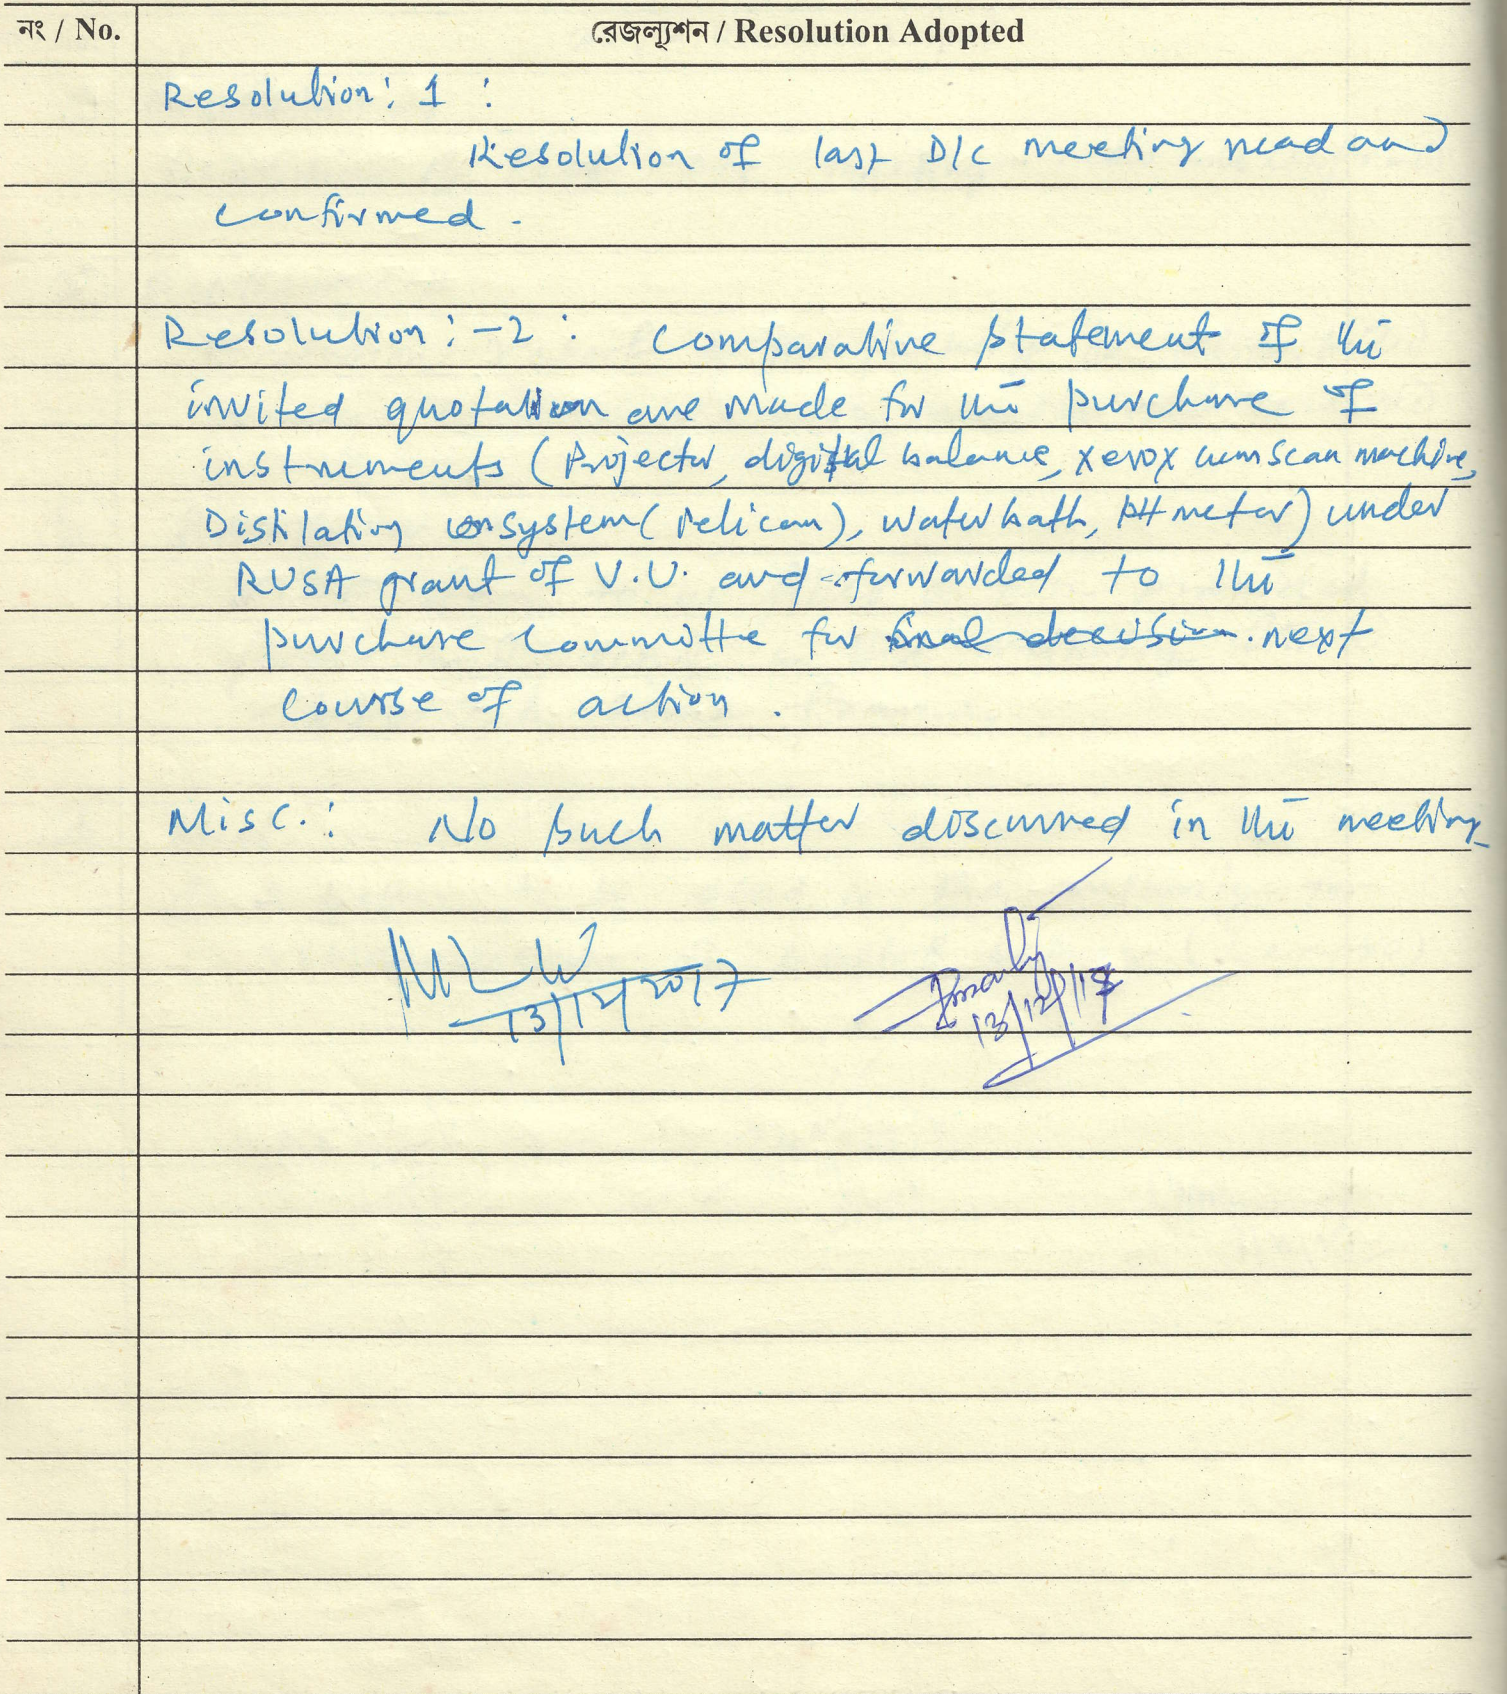 নং / No. রেজল্যুশন / Resolution Adopted
Resolution: 1 :
Resolution of last D/C meeting read and
confirmed.
Resolution: -2 : Comparative statement of the
invited quotation are made for the purchase of
instruments (Projector, digital balance, xerox cum scan machine,
Distilating system (Pelican), water bath, PH meter) under
RUSA grant of V.U. and forwarded to the
purchase Committe for final decision. next
course of action.
Misc.: No such matter discussed in the meeting
13/12/2017
13/12/17